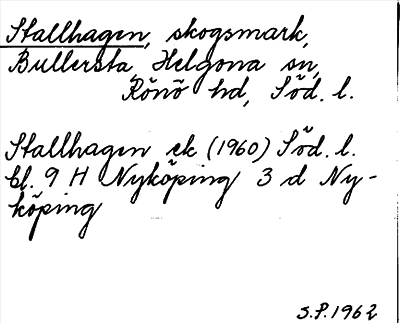 Stallhagen, skogsmark,
Bullersta, Helgona sn,
Rönö hd, Söd. l.
Stallhagen ek (1960) Söd. l.
bl. 9 H Nyköping 3 d Ny-
köping
S.P. 1962